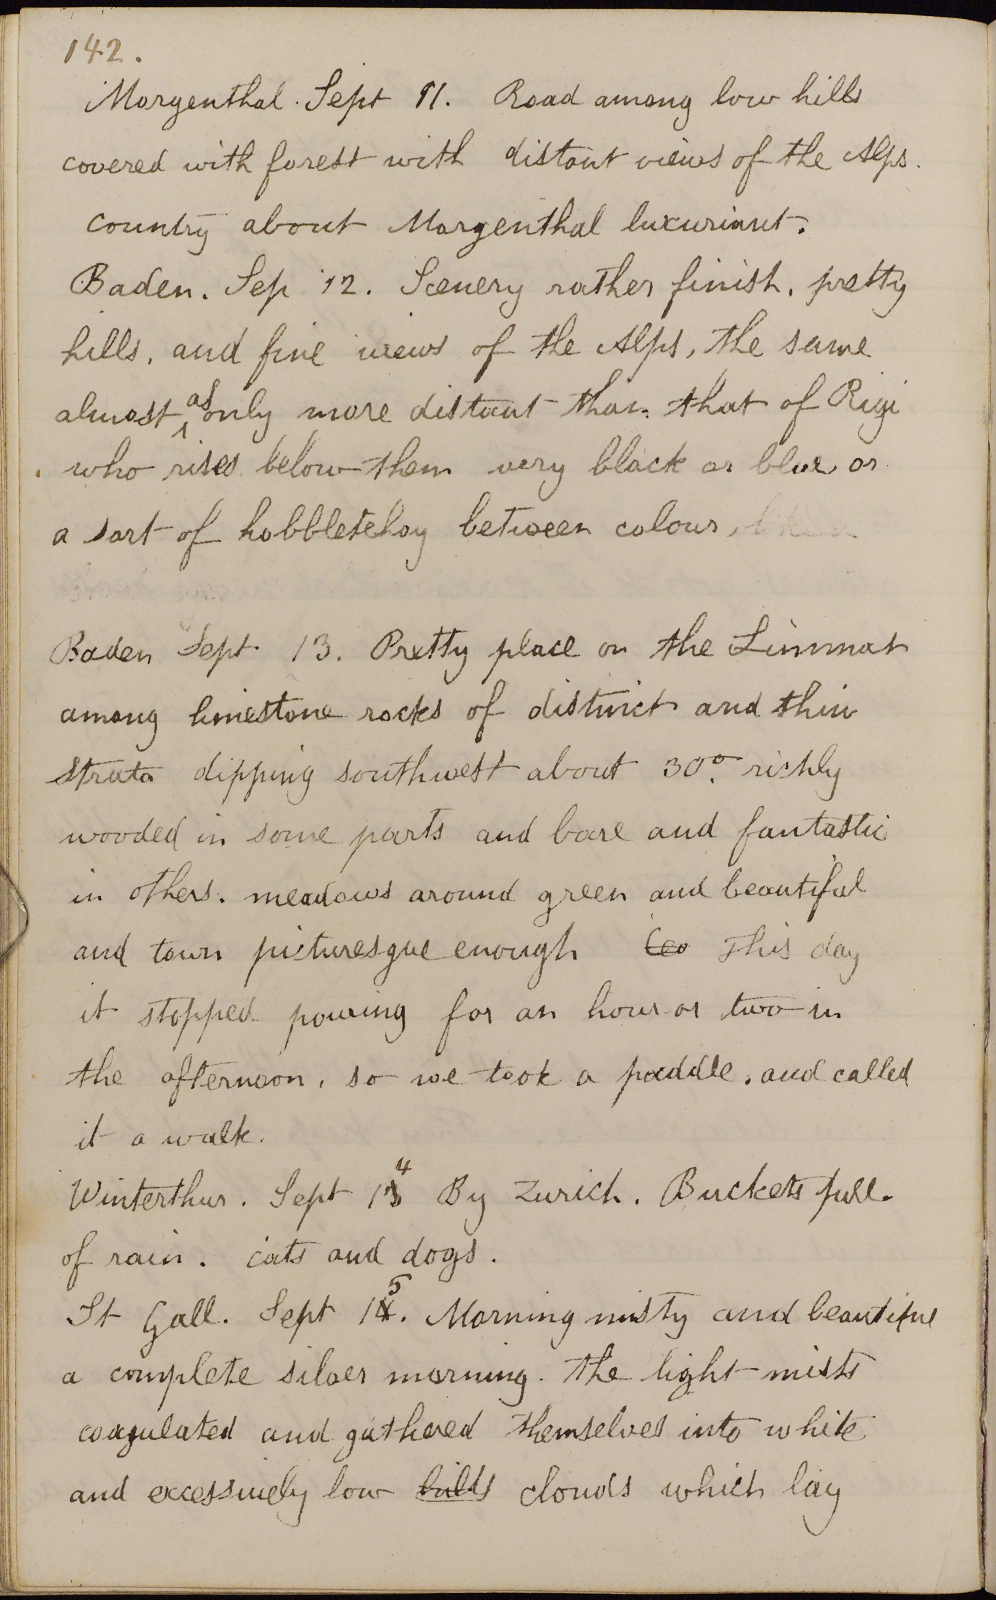 142.
Morgenthal. Sept 11. Road among low hills
covered with forest with distant views of the Alps.
Country about Morgenthal luxuriant.
Baden. Sep 12. Scenery rather finish, pretty
hills, and fine views of the Alps, the same
almost as only more distant than that of Rigi
who rises below them very black or blue, or
a sort of hobbletehoy between colour,
Baden Sept 13. Pretty place on the Limmat
among limestone rocks of distinct and thin
strata dipping southwest about 30°. richly
wooded in some parts and bare and fantastic
in others. meadows around green and beautiful
and town picturesque enough This day
it stopped pouring for an hour or two in
the afternoon, so we took a paddle, and called
it a walk.
Winterthur. Sept 14 By Zurich. Buckets full
of rain. cats and dogs.
St Gall. Sept 15. Morning misty and beautiful
a complete silver morning. the light mists
coagulated and gathered themselves into white
and excessively low hills clouds which lay